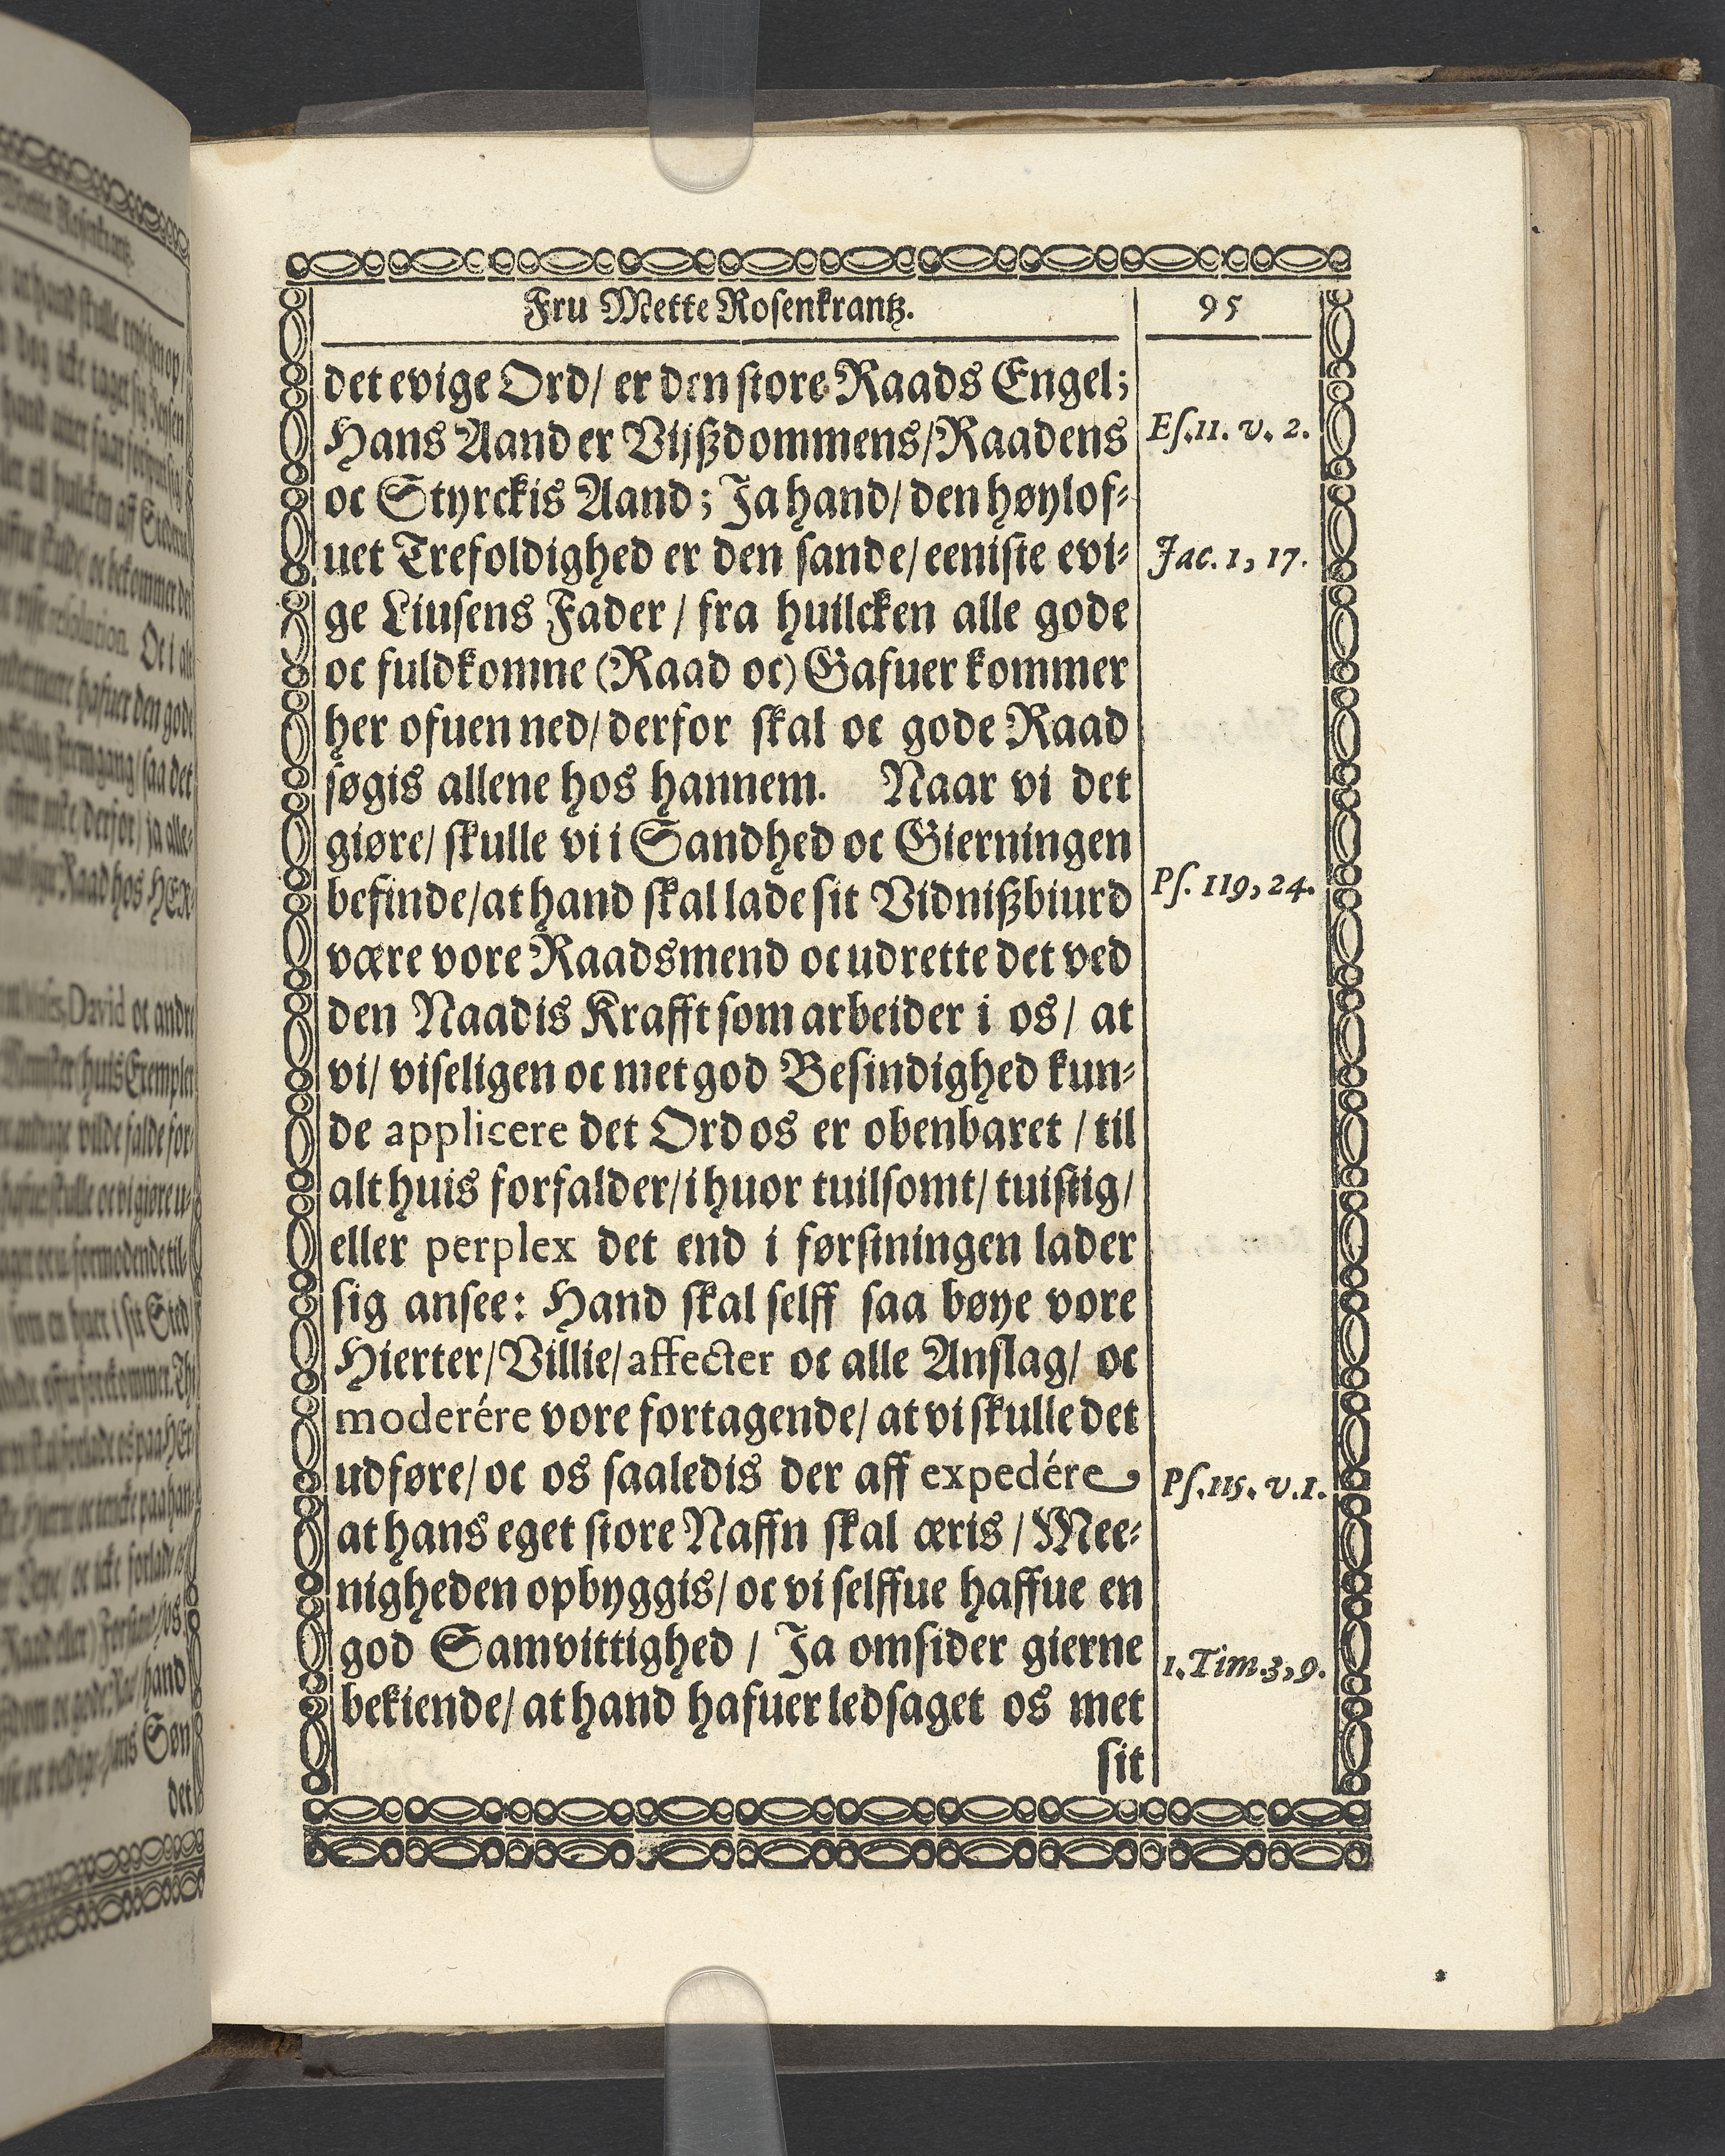 Fru Mette Rosenkrantz.
95
det evige Ord/ er den store Raads Engel;
Hans Aand er Vijßdommens/Raadens
Es.11. v. 2.
oc Styrckis Aand; Ja hand/ den høylof-
uet Trefoldighed er den sande/ eeniste evi-
Jac. 1, 17.
ge Liusens Fader / fra huilcken alle gode
oc fuldkomne (Raad oc) Gafuer kommer
her ofuen ned/ derfor skal oc gode Raad
søgis allene hos hannem. Naar vi det
giøre/ skulle vi i Sandhed oc Gierningen
befinde/at hand skal lade sit Vidnißbiurd
Ps. 119, 24.
være vore Raadsmend oc udrette det ved
den Naadis Krafft som arbeider i os/ at
vi/ viseligen oc met god Besindighed kun-
de applicere det Ord os er obenbaret / til
alt huis forfalder/ i huor tuilsomt/ tuistig/
eller perplex det end i førstningen lader
sig ansee: Hand skal selff saa bøye vore
Hierter/Villie/affecter oc alle Anslag/ oc
moderére vore fortagende/ at vi skulle det
udføre/ oc os saaledis der aff expedére
Ps.115. v.1.
at hans eget store Naffn skal æris / Mee-
nigheden opbyggis/ oc vi selffue haffue en
god Samvittighed / Ja omsider gierne
1. Tim.3,9.
bekiende/ at hand hafuer ledsaget os met
sit